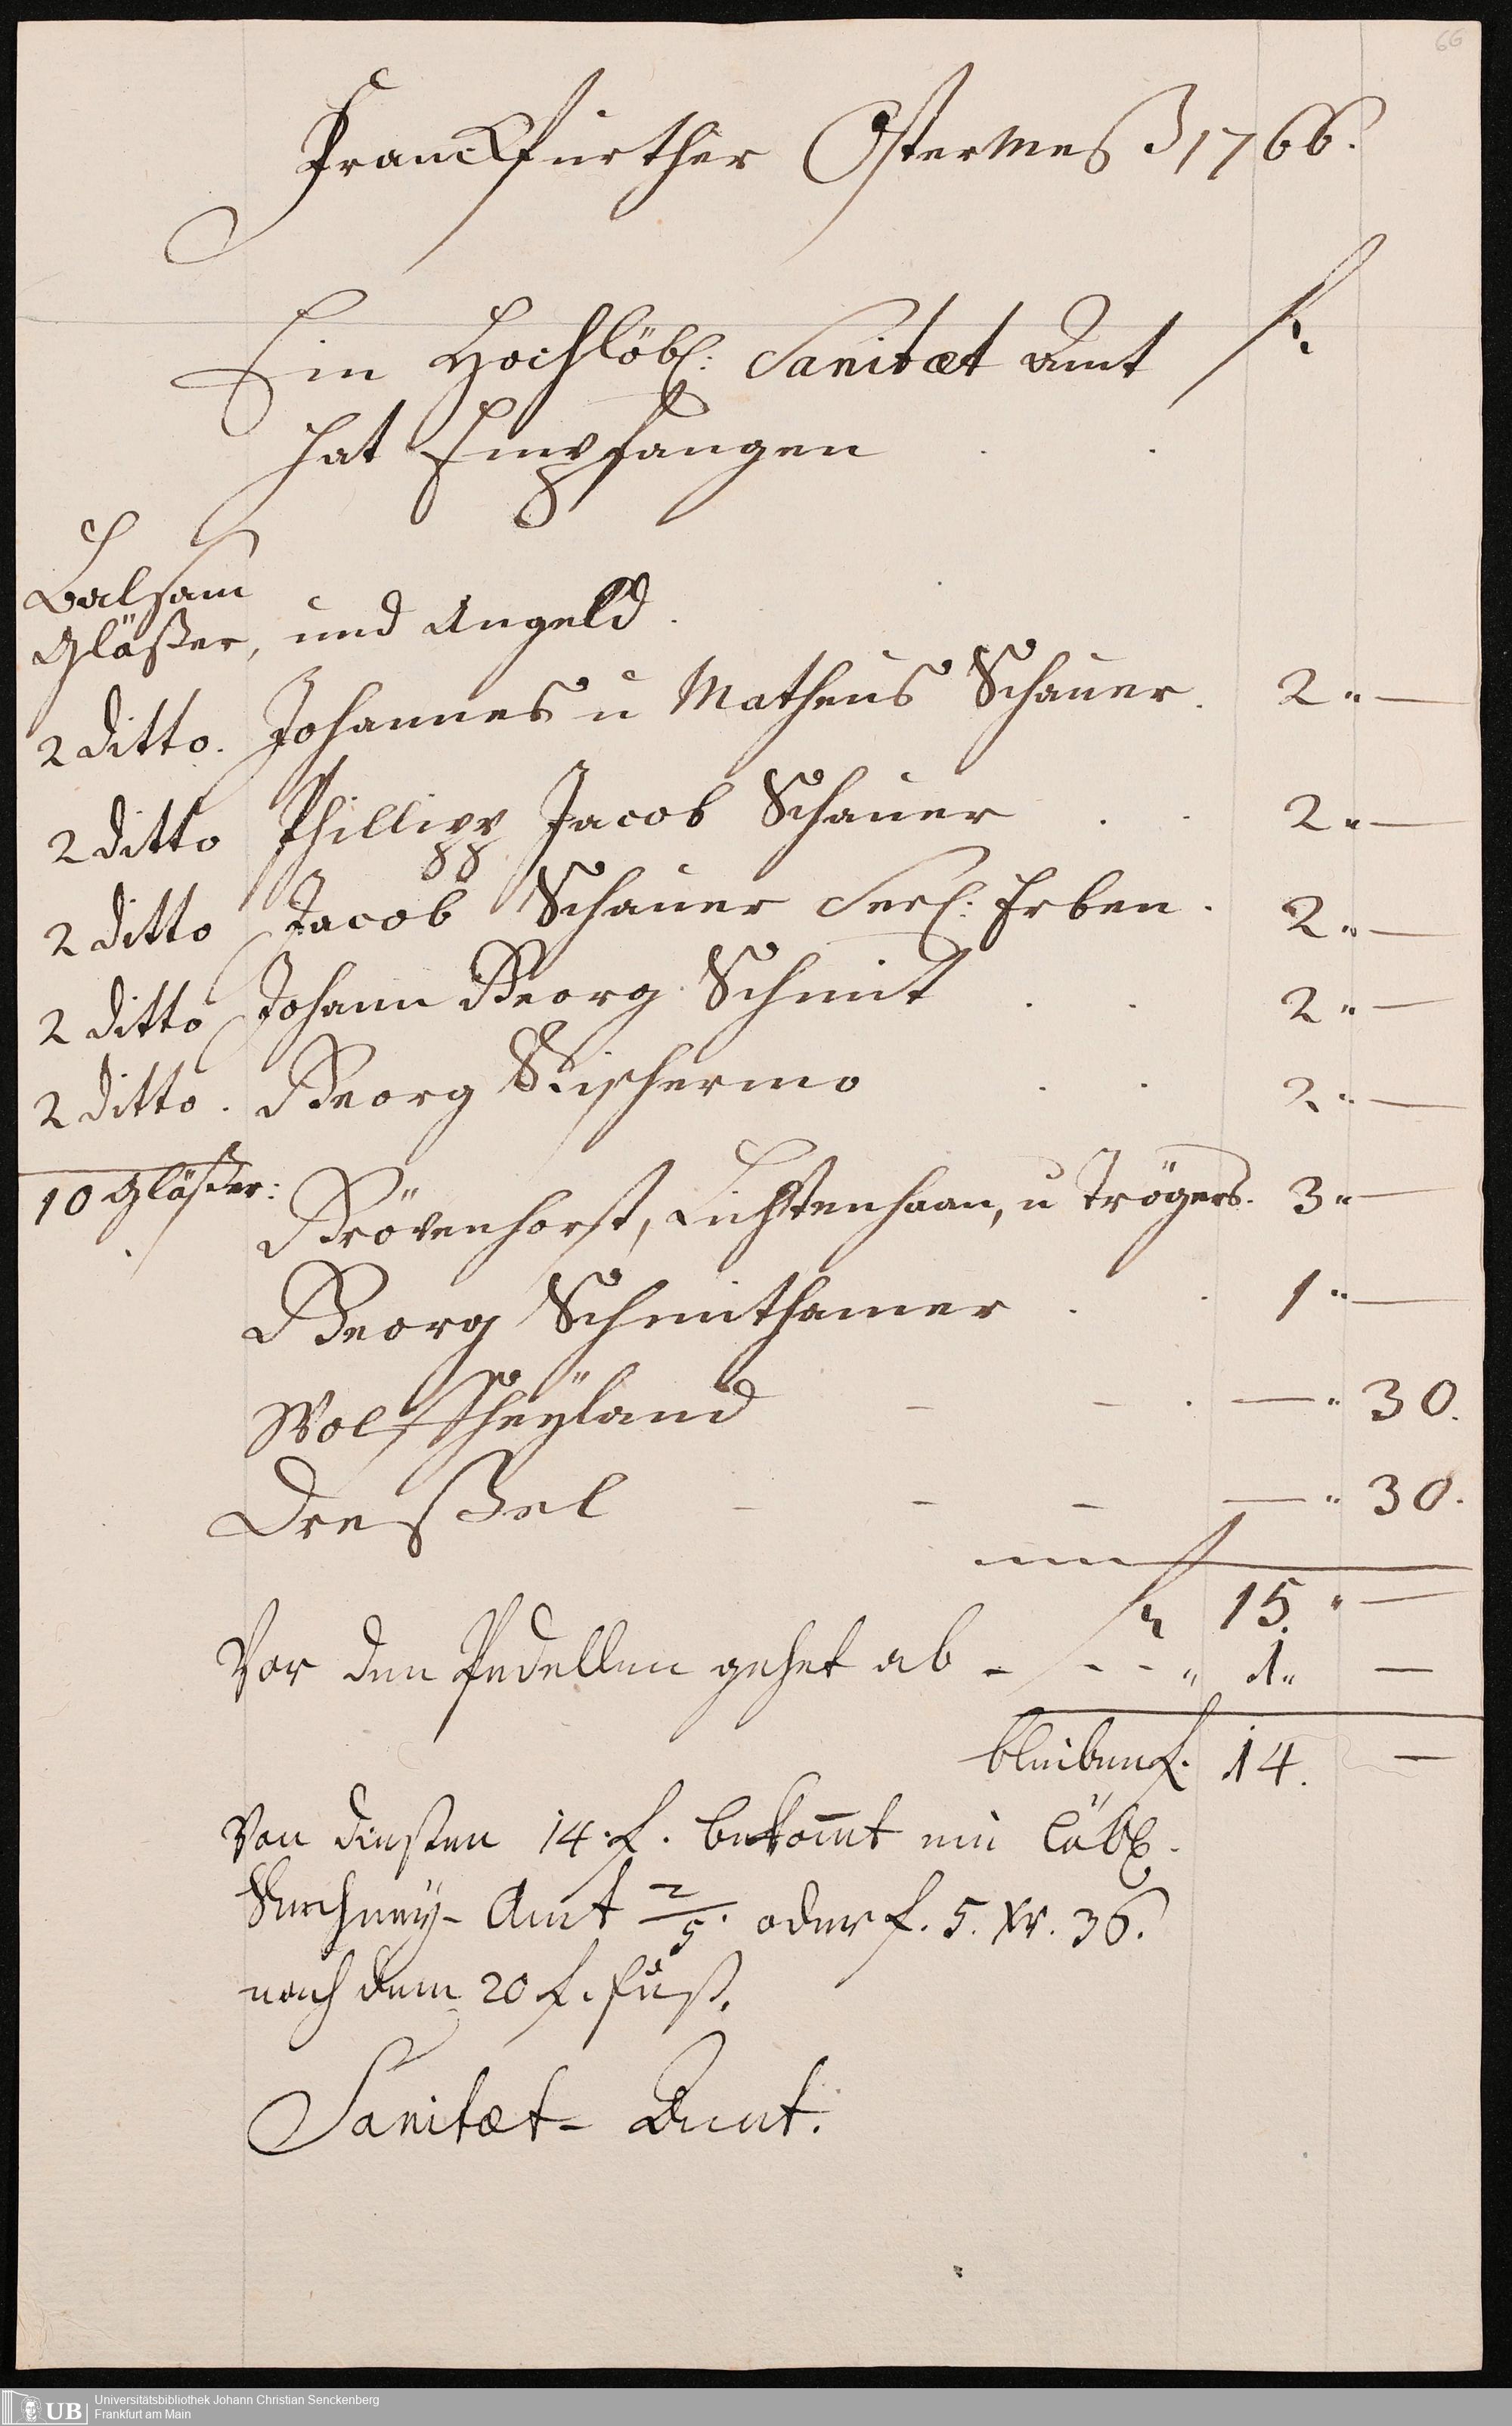 66
Franckfurther Ostermeß 1766.
Ein Hochlöbl: Sanitæt Amt f
hat Empfangen
Balsam
Gläßer, und Angeld.
2 ditto. Johannes u Matheus Schauer. 2 " —
2 ditto Phillipp Jacob Schauer . . 2 " —
2 ditto Jacob Schauer Seel: Erben. 2 " —
2 ditto Johann Georg Schmit . . 2 " —
2 ditto. Georg . . 2 " —
10 Gläßer: Grövenhorst, Lichtenhaan, u Trögers. 3 " —
Georg Schmithamer . . 1 " —
Wolf Heÿland – – . — " 30.
Dreßel – – – — " 30.
f 15. " —
Vor den Pedellen gehet ab - - - " 1 " —
bleiben f. 14. —
Von dießen 14. f. bekom̄t ein Löbl.
Rechneÿ-Amt 2/5. oder f. 5. Xr. 36.
nach dem 20 f. fuß.
Sanitæt-Amt.
UB Universitätsbibliothek Johann Christian Senckenberg
Frankfurt am Main